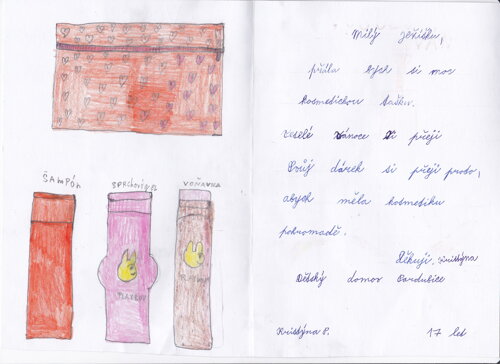 ŠAMPÓN
SPRCHOVÝ GEL
VOŇAVKA
PLAYBOY
PLAYBOY
Milý Ježíšku,
přála bych si moc
kosmetickou tašku.
Veselé Vánoce Ti přeji
Svůj dárek si přeji proto,
abych měla kosmetiku
pohromadě.
Děkuji, Kristýna
Dětský domov Pardubice
Kristýna P. 17 let